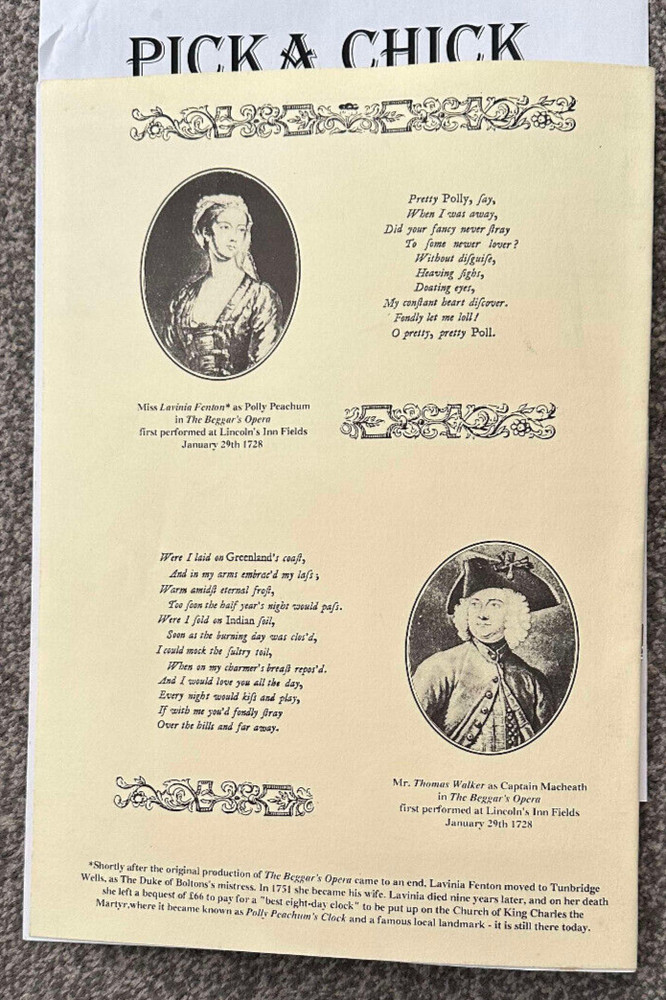 PICK A CHICK
Pretty Polly, ſay,
When I was away,
Did your fancy never ſtray
To ſome newer lover?
Without diſguiſe,
Heaving ſighs,
Doating eyes,
My conſtant heart diſcover.
Fondly let me loll!
O pretty, pretty Poll.
Miss Lavinia Fenton* as Polly Peachum
in The Beggar's Opera
first performed at Lincoln's Inn Fields
January 29th 1728
Were I laid on Greenland's coaſt,
And in my arms embrac'd my laſs;
Warm amidſt eternal froſt,
Too ſoon the half year's night would paſs.
Were I ſold on Indian ſoil,
Soon as the burning day was clos'd,
I could mock the ſultry toil,
When on my charmer's breaſt repos'd.
And I would love you all the day,
Every night would kiſs and play,
If with me you'd fondly ſtray
Over the hills and far away.
Mr. Thomas Walker as Captain Macheath
in The Beggar's Opera
first performed at Lincoln's Inn Fields
January 29th 1728
*Shortly after the original production of The Beggar's Opera came to an end, Lavinia Fenton moved to Tunbridge
Wells, as The Duke of Boltons's mistress. In 1751 she became his wife. Lavinia died nine years later, and on her death
she left a bequest of £66 to pay for a "best eight-day clock" to be put up on the Church of King Charles the
Martyr,where it became known as Polly Peachum's Clock and a famous local landmark - it is still there today.